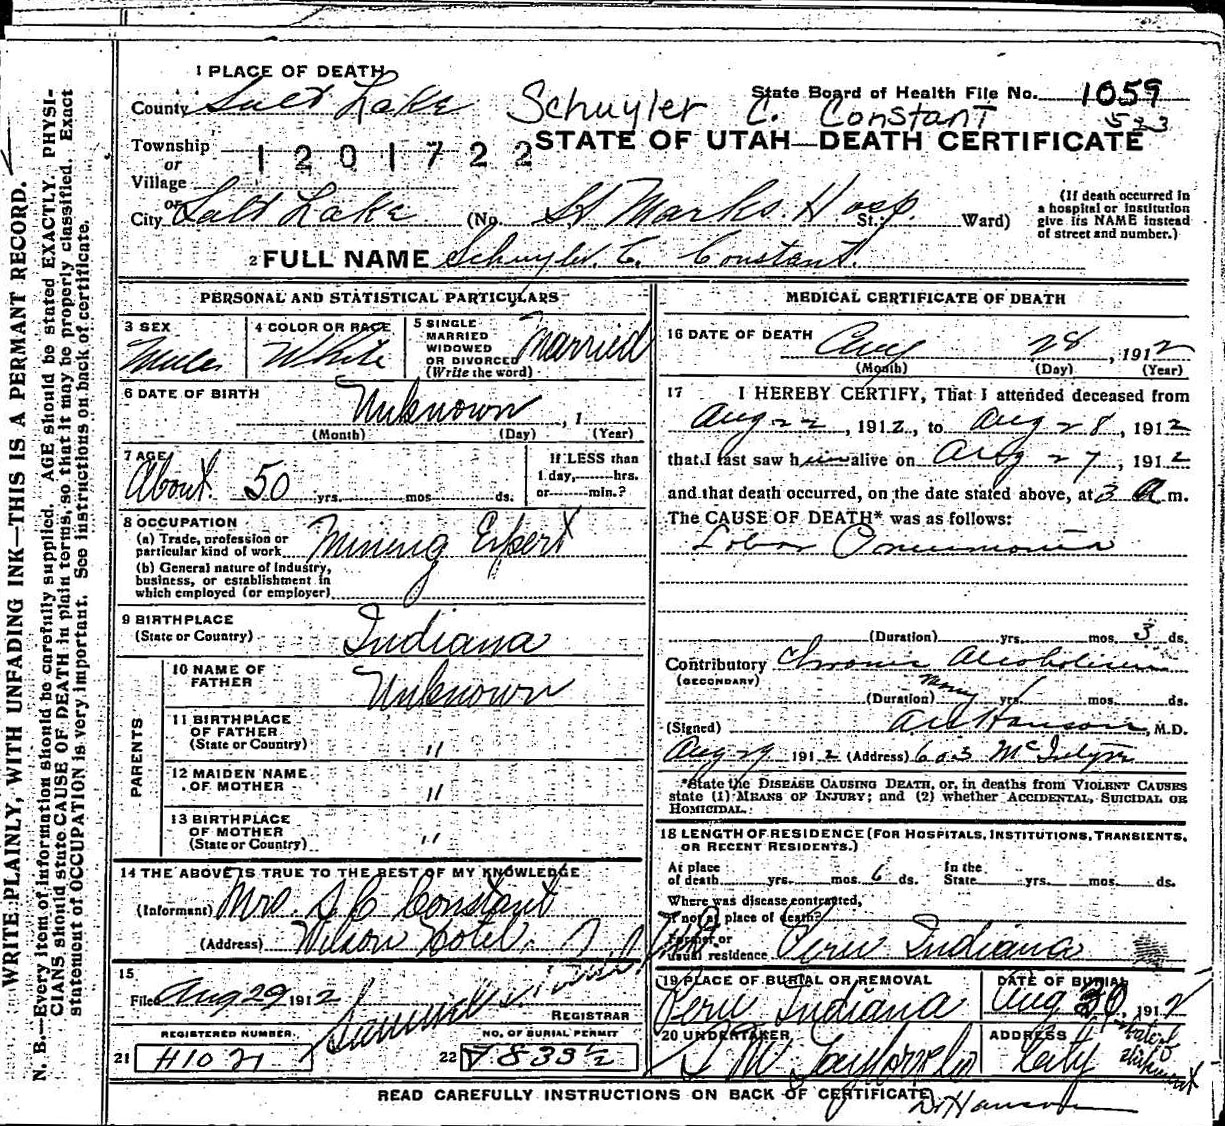 1 PLACE OF DEATH
County Salt Lake
Schuyler C. Constant
State Board of Health File No. 1059
523
Township
or
Village
1201722
STATE OF UTAH—DEATH CERTIFICATE
or
City Salt Lake (No. St Marks Hosp. St.; Ward)
(If death occurred in a hospital or institution give its NAME instead of street and number.)
2 FULL NAME Schuyler. C. Constant.
PERSONAL AND STATISTICAL PARTICULARS
3 SEX
Male
4 COLOR OR RACE
White
5 SINGLE
MARRIED
WIDOWED
OR DIVORCED
(Write the word)
Married
6 DATE OF BIRTH
Unknown, 1
(Month) (Day) (Year)
7 AGE
About 50 yrs. mos. ds.
If LESS than
1 day, hrs.
or min.?
8 OCCUPATION
(a) Trade, profession or
particular kind of work
Mining Expert
(b) General nature of industry,
business, or establishment in
which employed (or employer)
9 BIRTHPLACE
(State or Country)
Indiana
PARENTS
10 NAME OF
FATHER
Unknown
11 BIRTHPLACE
OF FATHER
(State or Country) "
12 MAIDEN NAME
OF MOTHER "
13 BIRTHPLACE
OF MOTHER
(State or Country) "
14 THE ABOVE IS TRUE TO THE BEST OF MY KNOWLEDGE
(Informant) Mrs. S C Constant
(Address) Wilson Hotel.
15
Filed Aug 29 1912
REGISTRAR
REGISTERED NUMBER.
21 H1021
NO. OF BURIAL PERMIT
22 7833½
MEDICAL CERTIFICATE OF DEATH
16 DATE OF DEATH
Aug 28, 1912
(Month) (Day) (Year)
17 I HEREBY CERTIFY, That I attended deceased from
Aug 22, 1912, to Aug 28, 1912
that I last saw him alive on Aug 27, 1912
and that death occurred, on the date stated above, at 3 a m.
The CAUSE OF DEATH* was as follows:
Lobar Pneumonia
(Duration) yrs. mos. 3 ds.
Contributory Chronic Alcoholism
(SECONDARY)
(Duration) many yrs. mos. ds.
(Signed) Hanson M.D.
Aug 29 1912 (Address) 603 McIntyre
*State the DISEASE CAUSING DEATH, or, in deaths from VIOLENT CAUSES
state (1) MEANS OF INJURY; and (2) whether ACCIDENTAL, SUICIDAL OR
HOMICIDAL.
18 LENGTH OF RESIDENCE (FOR HOSPITALS, INSTITUTIONS, TRANSIENTS,
OR RECENT RESIDENTS.)
At place
of death yrs. mos. 6 ds.
In the
State yrs. mos. ds.
Where was disease contracted,
if not at place of death?
Former or
usual residence Peru Indiana
19 PLACE OF BURIAL OR REMOVAL
Peru Indiana
DATE OF BURIAL
Aug 30, 1912
date of shipment
20 UNDERTAKER
ADDRESS
City
READ CAREFULLY INSTRUCTIONS ON BACK OF CERTIFICATE
Dr Hanson
WRITE PLAINLY, WITH UNFADING INK—THIS IS A PERMANT RECORD.
N. B.—Every item of information should be carefully supplied. AGE should be stated EXACTLY. PHYSI-
CIANS should state CAUSE OF DEATH in plain terms, so that it may be properly classified. Exact
statement of OCCUPATION is very important. See instructions on back of certificate.